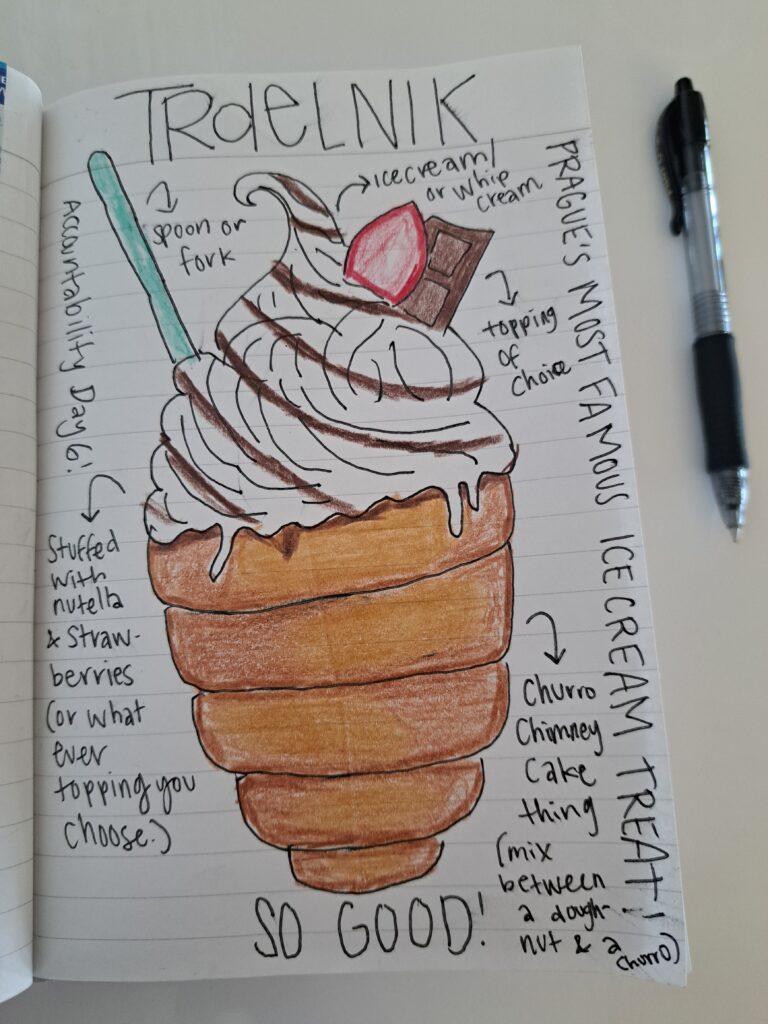 TRdELNIK
icecream/
or whip
cream
spoon or
fork
topping
of
choice
PRAGUE'S MOST FAMOUS ICECREAM TREAT!
Accountability Day 6!
Stuffed
with
nutella
& straw-
berries
(or what
ever
topping you
choose.)
Churro
Chimney
Cake
thing
(mix
between
a dough-
nut & a
churro)
SO GOOD!